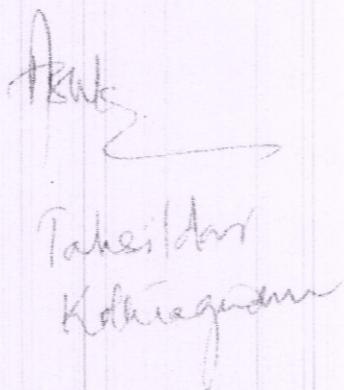 Tahsildar
Kothagudem